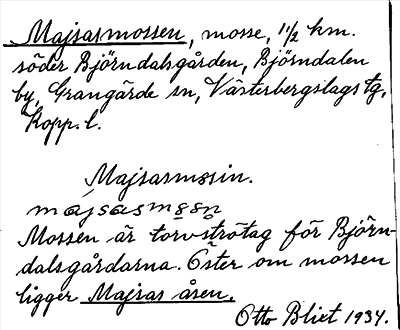 Majsasmossen, mosse, 1 1/2 km.
söder Björndalsgården, Björndalen
by, Grangärde sn, Västerbergslags tg,
Kopp. l.
Majsasmossin.
Mossen är torvströtag för Björn-
dalsgårdarna. Öster om mossen
ligger Majsas åsen.
Otto Blixt 1934.